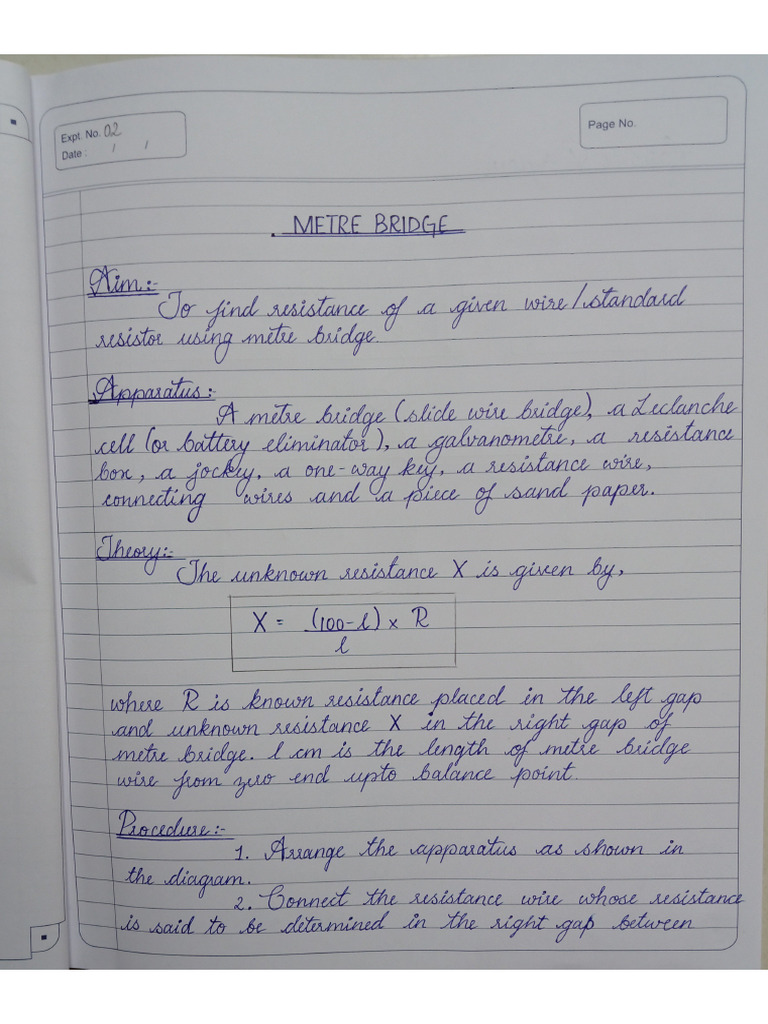 Expt. No. 02
Date : / /
Page No.
METRE BRIDGE
Aim:-
To find resistance of a given wire/standard
resistor using metre bridge.
Apparatus:-
A metre bridge (slide wire bridge), a Leclanche
cell (or battery eliminator), a galvanometre, a resistance
box, a jockey, a one-way key, a resistance wire,
connecting wires and a piece of sand paper.
Theory:-
The unknown resistance X is given by,
X = (100-l) x R
l
where R is known resistance placed in the left gap
and unknown resistance X in the right gap of
metre bridge. l cm is the length of metre bridge
wire from zero end upto balance point.
Procedure:-
1. Arrange the apparatus as shown in
the diagram.
2. Connect the resistance wire whose resistance
is said to be determined in the right gap between